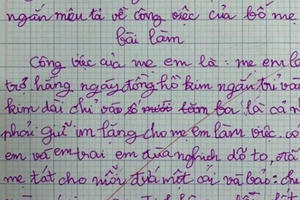 ngắn miêu tả về công việc của bố mẹ
bài làm
Công việc của mẹ em là: mẹ em là
trợ hằng ngày đồng hồ kim ngắn trỏ và
kim dài chỉ vào số ba là cả n
phải giữ im lặng cho mẹ em làm việc. có
em và em trai em đùa nghịch dỗ to,
mẹ tát cho mỗi đứa một cái và bảo: ch